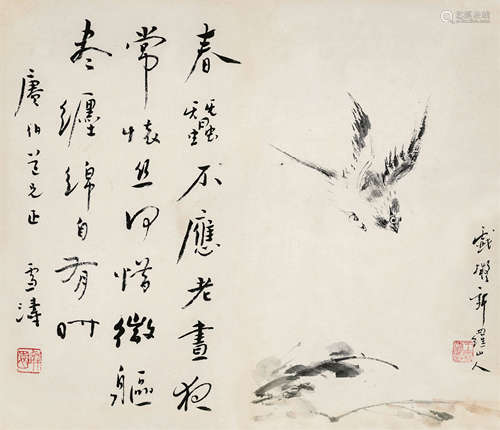 春蠶不應老晝夜
常懷絲何惜微軀
盡纏綿自有時
賡伯道兄正
雪濤
戲擬新羅山人